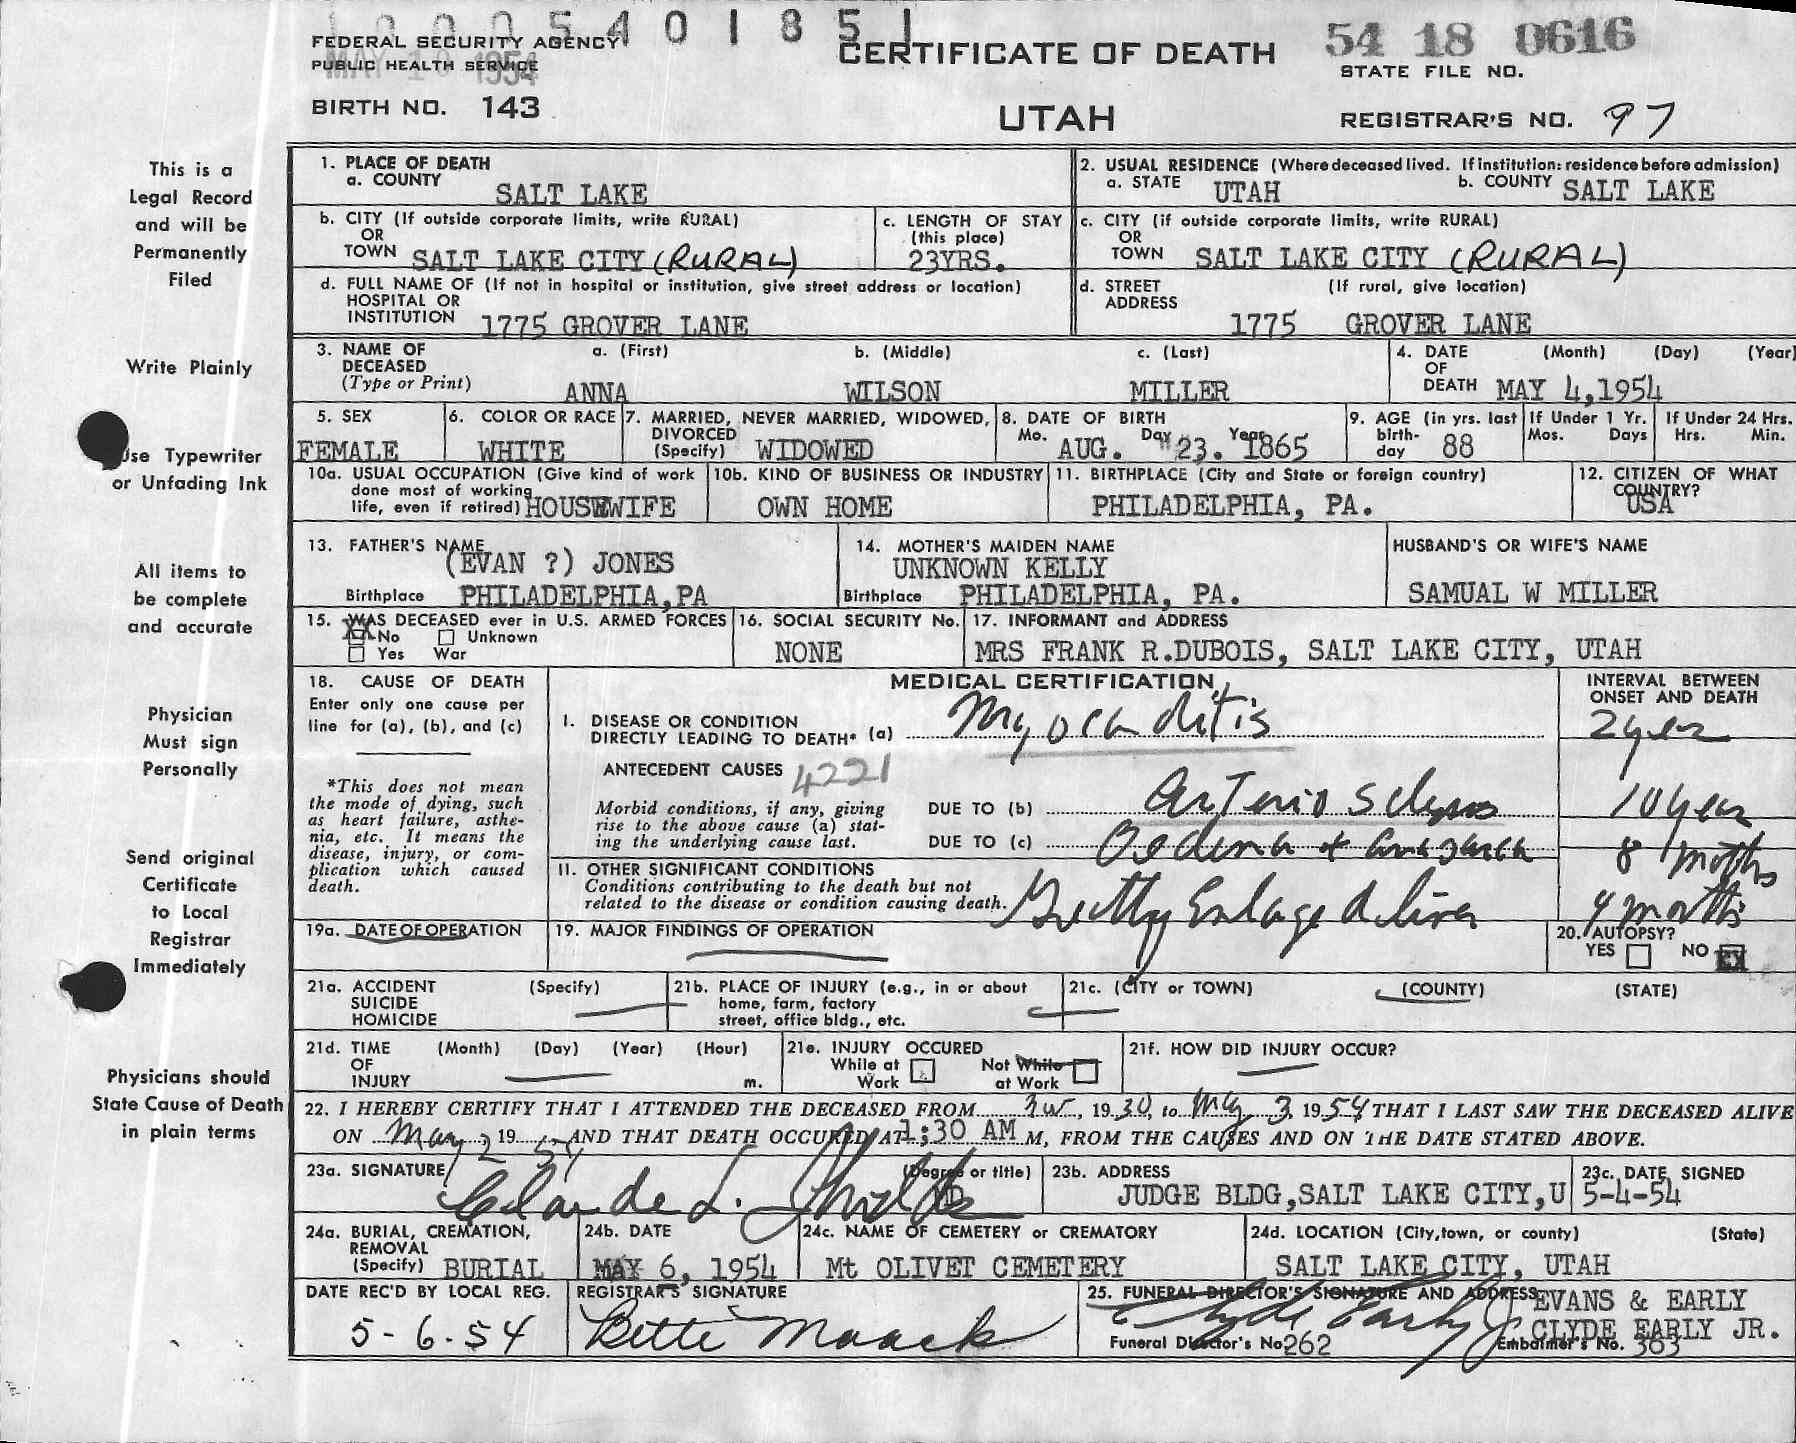 1 0 0 0 5 4 0 1 8 5 1
FEDERAL SECURITY AGENCY
PUBLIC HEALTH SERVICE
MAY 1954
CERTIFICATE OF DEATH
54 18 0616
STATE FILE NO.
BIRTH NO. 143
UTAH
REGISTRAR'S NO. 97
This is a
Legal Record
and will be
Permanently
Filed
Write Plainly
Use Typewriter
or Unfading Ink
All items to
be complete
and accurate
Physician
Must sign
Personally
Send original
Certificate
to Local
Registrar
Immediately
Physicians should
State Cause of Death
in plain terms
1. PLACE OF DEATH
a. COUNTY
SALT LAKE
2. USUAL RESIDENCE (Where deceased lived. If institution: residence before admission)
a. STATE UTAH b. COUNTY SALT LAKE
b. CITY (If outside corporate limits, write RURAL)
OR
TOWN SALT LAKE CITY (RURAL)
c. LENGTH OF STAY
(this place)
23YRS.
c. CITY (if outside corporate limits, write RURAL)
OR
TOWN SALT LAKE CITY (RURAL)
d. FULL NAME OF (If not in hospital or institution, give street address or location)
HOSPITAL OR
INSTITUTION 1775 GROVER LANE
d. STREET (If rural, give location)
ADDRESS
1775 GROVER LANE
3. NAME OF a. (First) b. (Middle) c. (Last)
DECEASED
(Type or Print) ANNA WILSON MILLER
4. DATE (Month) (Day) (Year)
OF
DEATH MAY 4,1954
5. SEX
FEMALE
6. COLOR OR RACE
WHITE
7. MARRIED, NEVER MARRIED, WIDOWED,
DIVORCED
(Specify) WIDOWED
8. DATE OF BIRTH
Mo. Day Year
AUG. 23. 1865
9. AGE (in yrs. last
birth-
day 88
If Under 1 Yr.
Mos. Days
If Under 24 Hrs.
Hrs. Min.
10a. USUAL OCCUPATION (Give kind of work
done most of working
life, even if retired) HOUSEWIFE
10b. KIND OF BUSINESS OR INDUSTRY
OWN HOME
11. BIRTHPLACE (City and State or foreign country)
PHILADELPHIA, PA.
12. CITIZEN OF WHAT
COUNTRY?
USA
13. FATHER'S NAME
(EVAN ?) JONES
Birthplace PHILADELPHIA,PA
14. MOTHER'S MAIDEN NAME
UNKNOWN KELLY
Birthplace PHILADELPHIA, PA.
HUSBAND'S OR WIFE'S NAME
SAMUAL W MILLER
15. WAS DECEASED ever in U.S. ARMED FORCES
XX No Unknown
Yes War
16. SOCIAL SECURITY No.
NONE
17. INFORMANT and ADDRESS
MRS FRANK R.DUBOIS, SALT LAKE CITY, UTAH
18. CAUSE OF DEATH
Enter only one cause per
line for (a), (b), and (c)
*This does not mean
the mode of dying, such
as heart failure, asthe-
nia, etc. It means the
disease, injury, or com-
plication which caused
death.
MEDICAL CERTIFICATION
INTERVAL BETWEEN
ONSET AND DEATH
I. DISEASE OR CONDITION
DIRECTLY LEADING TO DEATH* (a) Myocarditis 2 year
ANTECEDENT CAUSES 4221
Morbid conditions, if any, giving
rise to the above cause (a) stat-
ing the underlying cause last.
DUE TO (b) 10 year
DUE TO (c) Oedema + anasarca 8 months
11. OTHER SIGNIFICANT CONDITIONS
Conditions contributing to the death but not
related to the disease or condition causing death. Greatly Enlarged liver 4 months
19a. DATE OF OPERATION
19. MAJOR FINDINGS OF OPERATION
20. AUTOPSY?
YES NO
21a. ACCIDENT (Specify)
SUICIDE
HOMICIDE
21b. PLACE OF INJURY (e.g., in or about
home, farm, factory
street, office bldg., etc.
21c. (CITY or TOWN) (COUNTY) (STATE)
21d. TIME (Month) (Day) (Year) (Hour)
OF
INJURY m.
21e. INJURY OCCURED
While at Not While
Work at Work
21f. HOW DID INJURY OCCUR?
22. I HEREBY CERTIFY THAT I ATTENDED THE DECEASED FROM , 19 30, to May 3 1954 THAT I LAST SAW THE DECEASED ALIVE
ON May 2 19 54 AND THAT DEATH OCCURED AT 1:30 AM M, FROM THE CAUSES AND ON THE DATE STATED ABOVE.
23a. SIGNATURE (Degree or title)
Claude L. Shields MD
23b. ADDRESS
JUDGE BLDG,SALT LAKE CITY,U
23c. DATE SIGNED
5-4-54
24a. BURIAL, CREMATION,
REMOVAL
(Specify) BURIAL
24b. DATE
MAY 6, 1954
24c. NAME OF CEMETERY or CREMATORY
Mt OLIVET CEMETERY
24d. LOCATION (City,town, or county) (State)
SALT LAKE CITY, UTAH
DATE REC'D BY LOCAL REG.
5-6-54
REGISTRAR'S SIGNATURE
Bette Maack
25. FUNERAL DIRECTOR'S SIGNATURE AND ADDRESS
Clyde Early Jr
EVANS & EARLY
CLYDE EARLY JR.
Funeral Director's No 262
Embalmer's No. 363